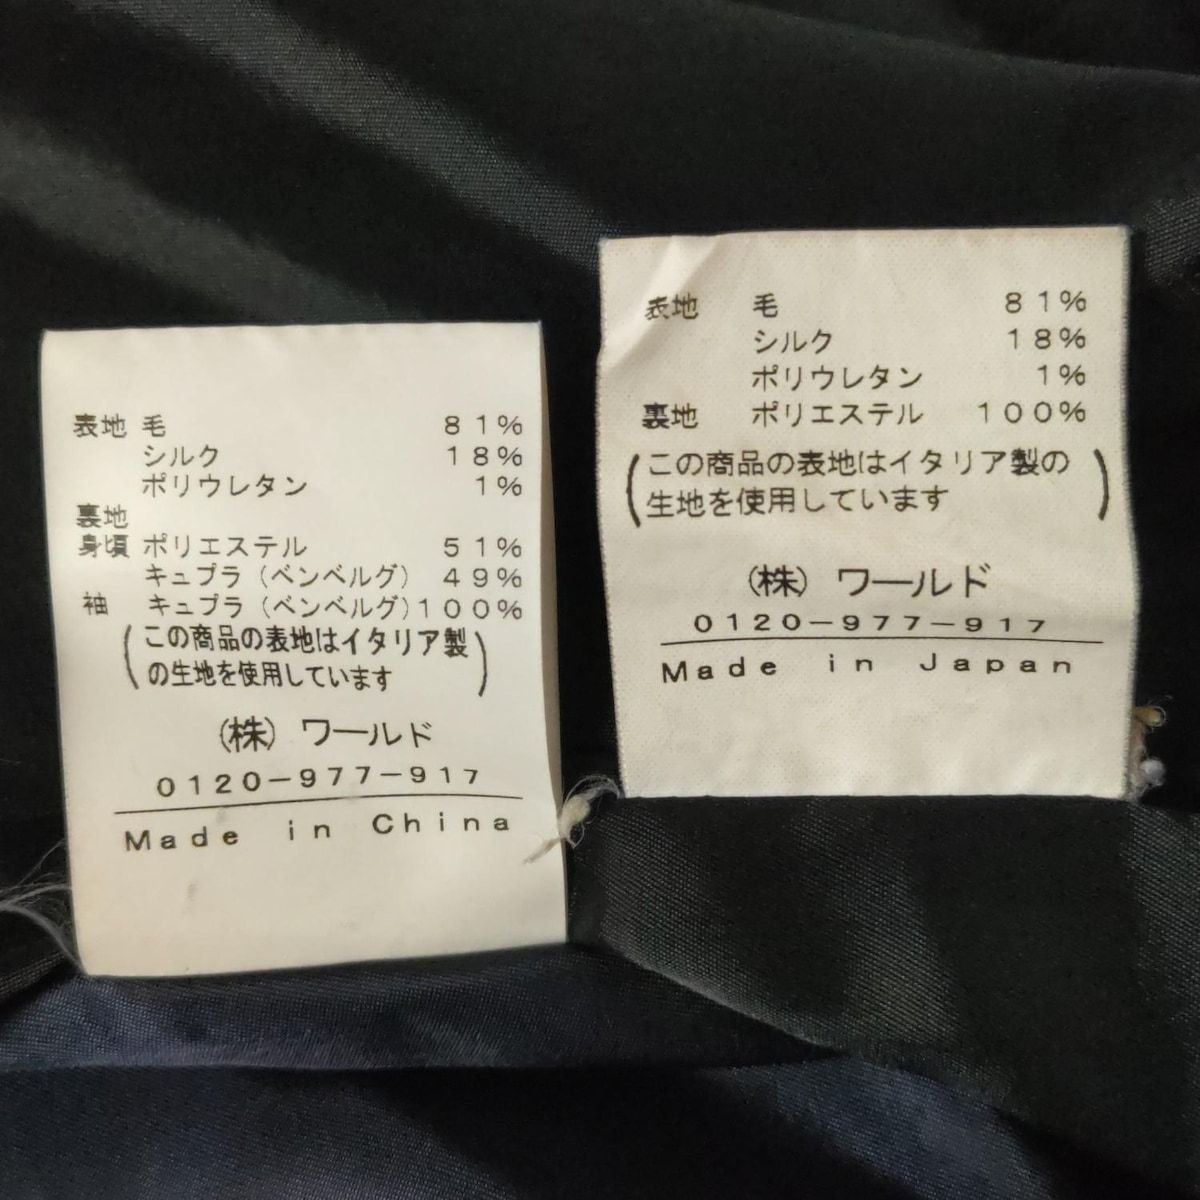 表地 毛 81%
シルク 18%
ポリウレタン 1%
裏地
身頃 ポリエステル 51%
キュプラ(ベンベルグ) 49%
袖 キュプラ(ベンベルグ)100%
(この商品の表地はイタリア製
の生地を使用しています)
(株) ワールド
0120-977-917
Made in China
表地 毛 81%
シルク 18%
ポリウレタン 1%
裏地 ポリエステル 100%
(この商品の表地はイタリア製の
生地を使用しています)
(株) ワールド
0120-977-917
Made in Japan